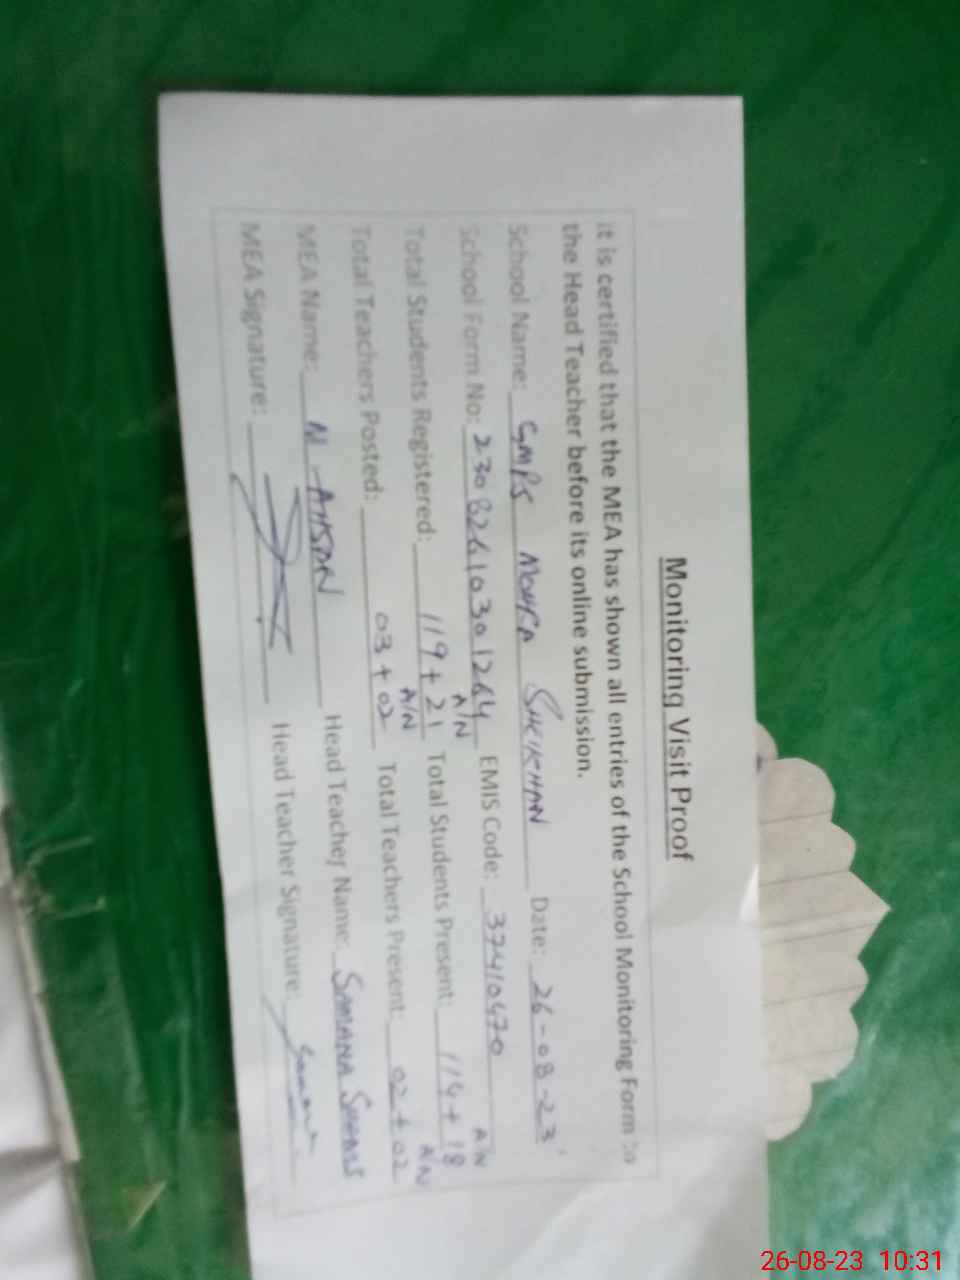 Monitoring Visit Proof
It is certified that the MEA has shown all entries of the School Monitoring Form to
the Head Teacher before its online submission.
School Name: GMPS MOHRA SHEIKHAN Date: 26-08-23
School Form No: 23082610301264 EMIS Code: 37410470
A/N A/N
Total Students Registered: 119+21 Total Students Present: 114+18
A/N A/N
Total Teachers Posted: 03+02 Total Teachers Present: 02+02
MEA Name: N AHSAN Head Teacher Name: SAMANA SHAMS
MEA Signature: Head Teacher Signature: Samana
26-08-23 10:31